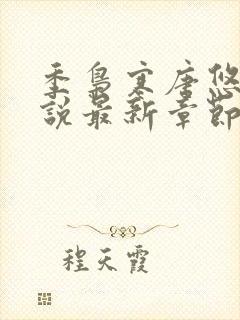 季梟寒唐悠
說最新章節
程天霞